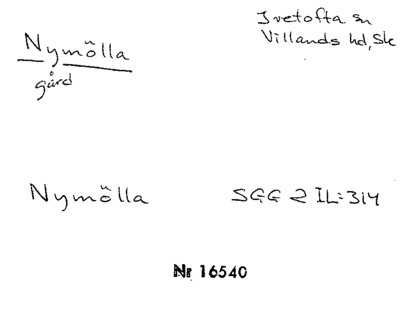 Nymölla
gård
Ivetofta sn
Villands hd, Sk
Nymölla
SGG 2 IL:314
Nr 16540